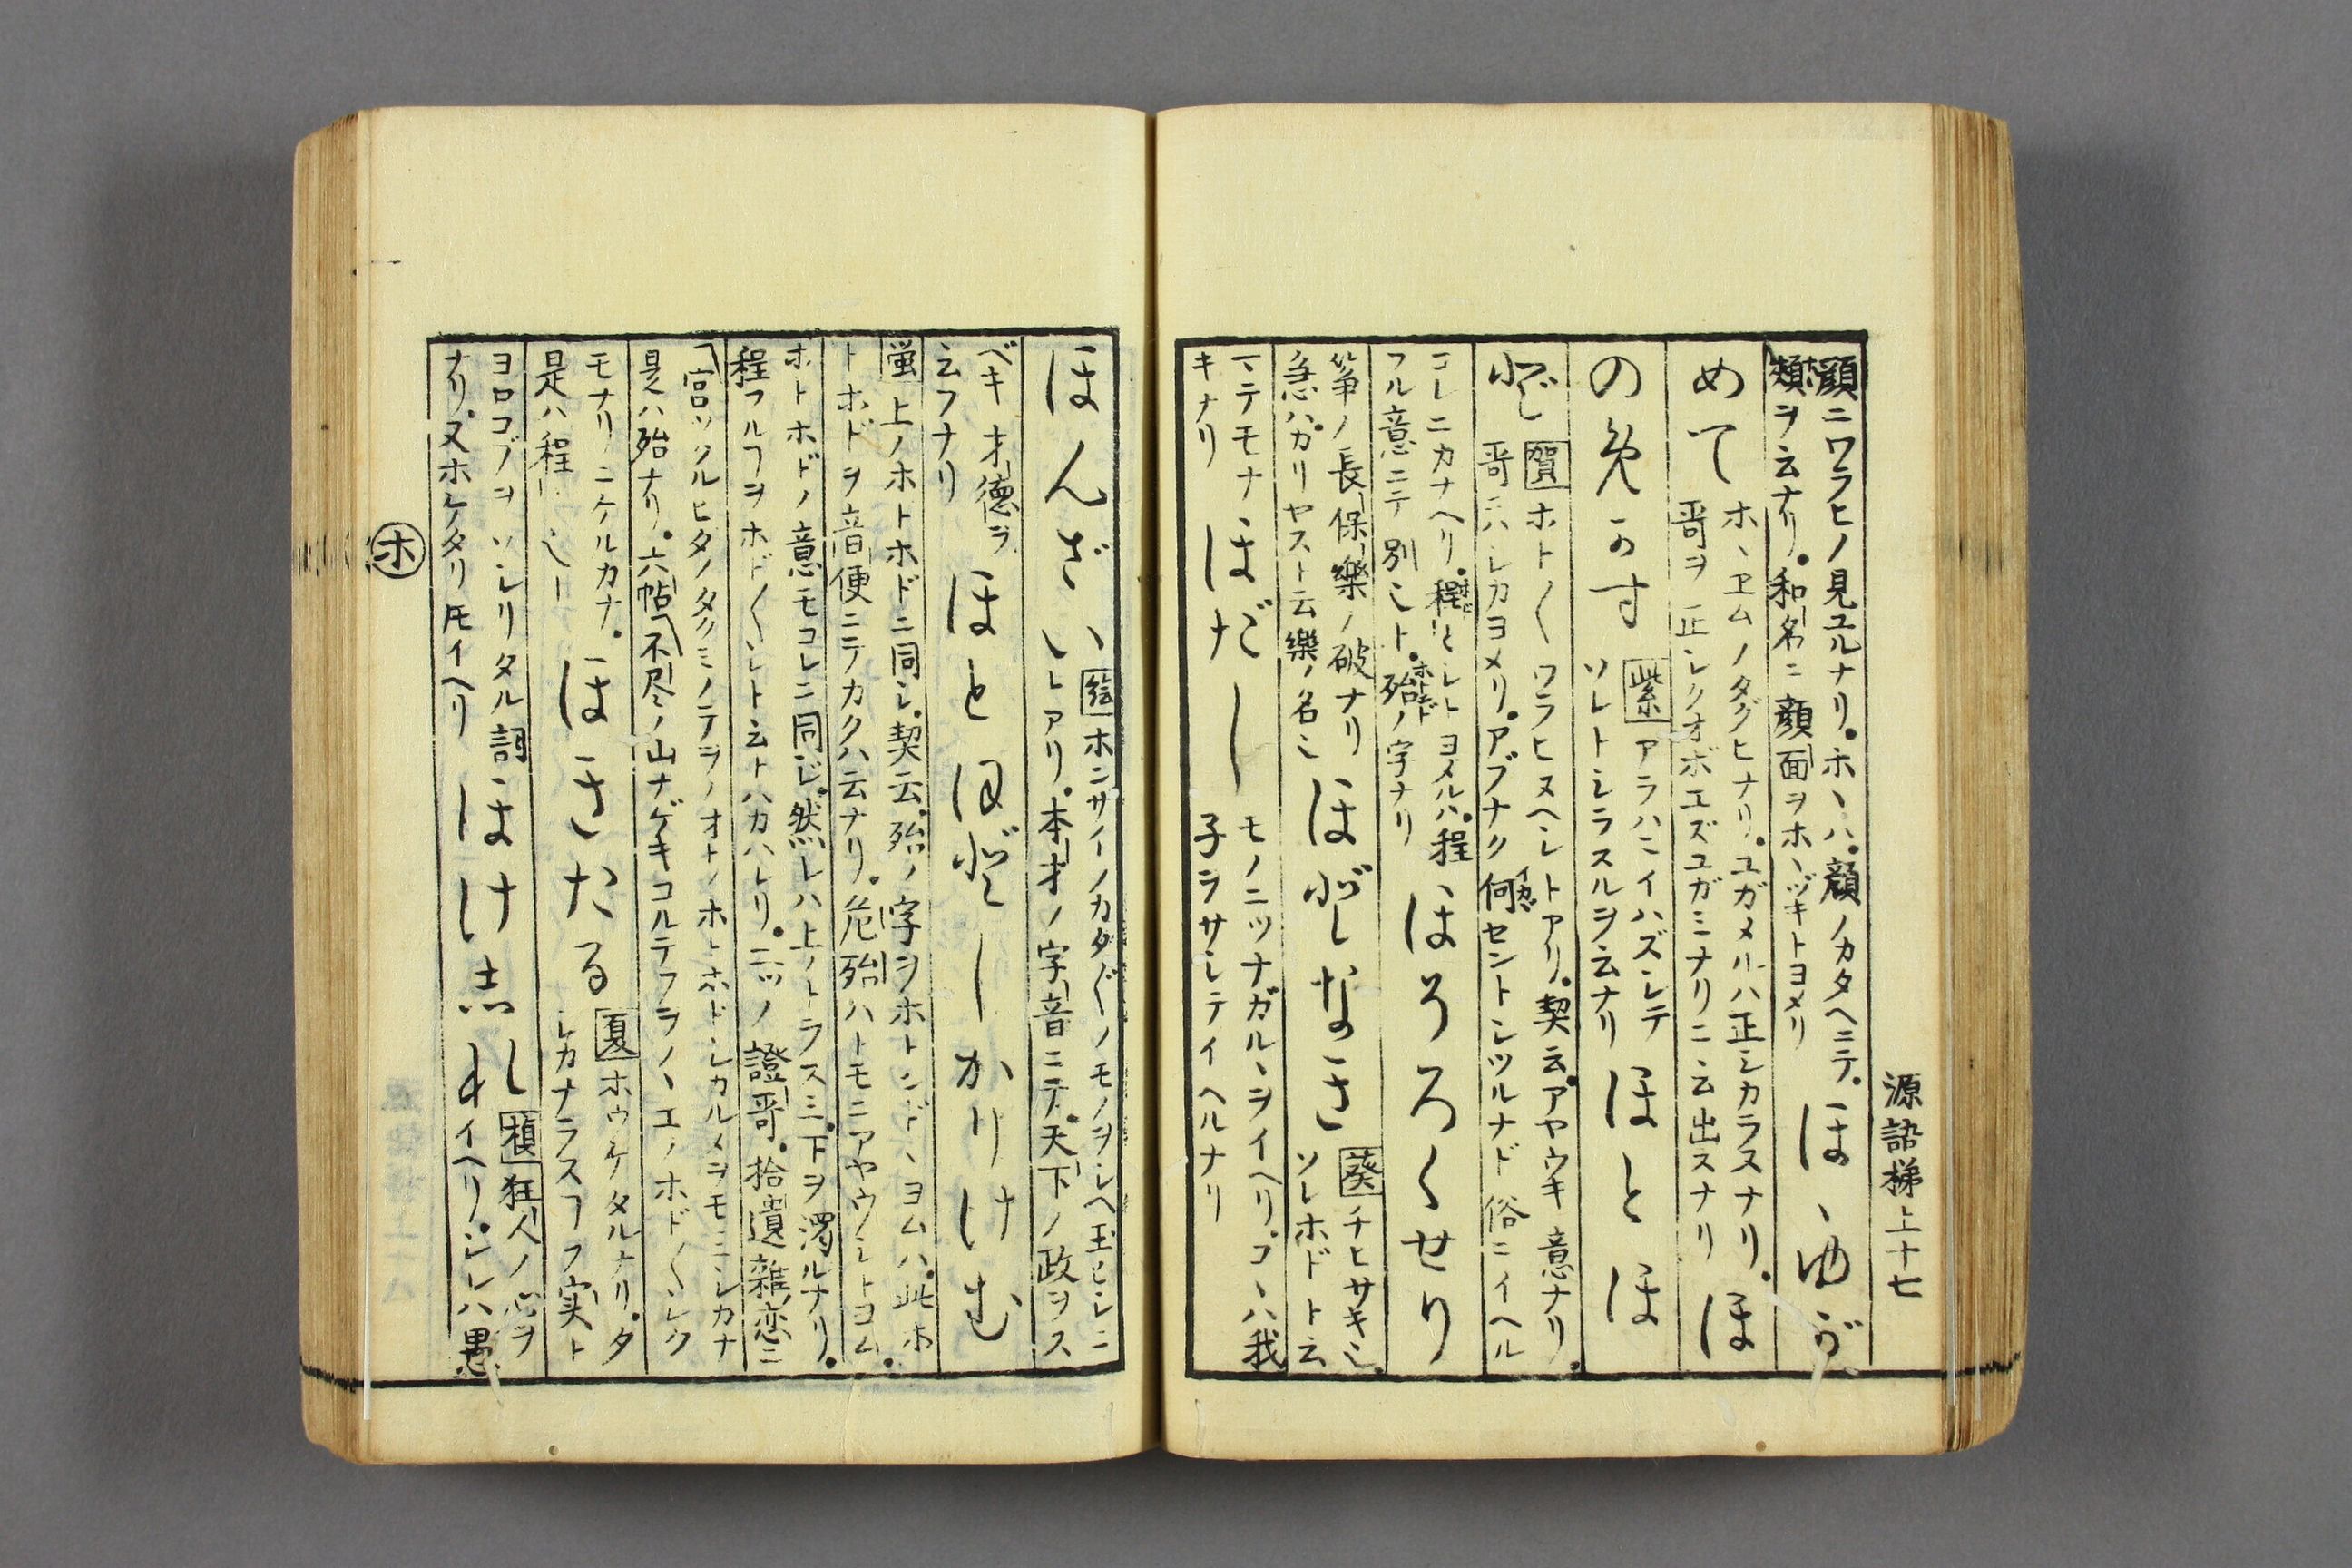 源語梯上十七
顔ニワラヒノ見ユルナリ。ホヽハ。顔ノカタヘニテ。
類ヲ云ナリ。和名ニ顔面ヲホヽヅキトヨメリ
ほゝゆが
めて
ホヽヱムノタグヒナリ。ユガメルハ正シカラヌナリ。
哥ヲ正シクオボエズユガミナリニ云出スナリ
ほ
の免かす
紫アラハニイハズシテ
ソレトシラスルヲ云ナリ
ほとほ
どし
賀ホト〱ワラヒヌヘシトアリ。契云。アヤウキ意ナリ。
哥ニハシカヨメリ。アブナク何セントシツルナド俗ニイヘル
コレニカナヘリ。程〻シトヨメルハ。程
フル意ニテ別也ト。殆ノ字ナリ
ほうろくせり
箏ノ長保樂ノ破ナリ
急ハ。カリヤスト云樂ノ名也
ほどなき
葵チヒサキ也。
ソレホドト云
マテモナ
キナリ
ほだし
モノニツナガルヽヲイヘリ。コヽハ我
子ヲサシテイヘルナリ
ほんざい
絵ホンサイノカタ〲ノモノヲシヘ玉ヒシニ
トアリ。本才ノ字音ニテ。天下ノ政ヲス
ベキ才德ヲ
云フナリ
ほとほどしかりけむ
螢上ノホトホドニ同シ。契云。殆ノ字ヲホトンドヽヨムハ。此ホ
トホドヲ音便ニテカクハ云ナリ。危殆ハトモニアヤウシトヨム。
ホトホドノ意モコレニ同じ。然レハ上ノトヲスミ。下ヲ濁ルナリ。
程フルヿヲホド〱シト云トハカハレリ。二ツノ證哥。拾遺雜恋ニ
宮ツクルヒタノタクミノテヲノオトノホトホドシカルメヲモミシカナ
是ハ殆ナリ。六帖不尽ノ山ナゲキコルテフヲノヽエノホド〱シク
モナリニケルカナ。
是ハ程〻シ也
ほきたる
夏ホウケタルナリ。タ
シカナラスヿヲ実ト
ヨロコブヲソシリタル詞
ナリ。又ホケタリ𪜈イヘリ
ほけ志れし
槇狂人ノ心ヲ
イヘリ。シレハ愚
ホ